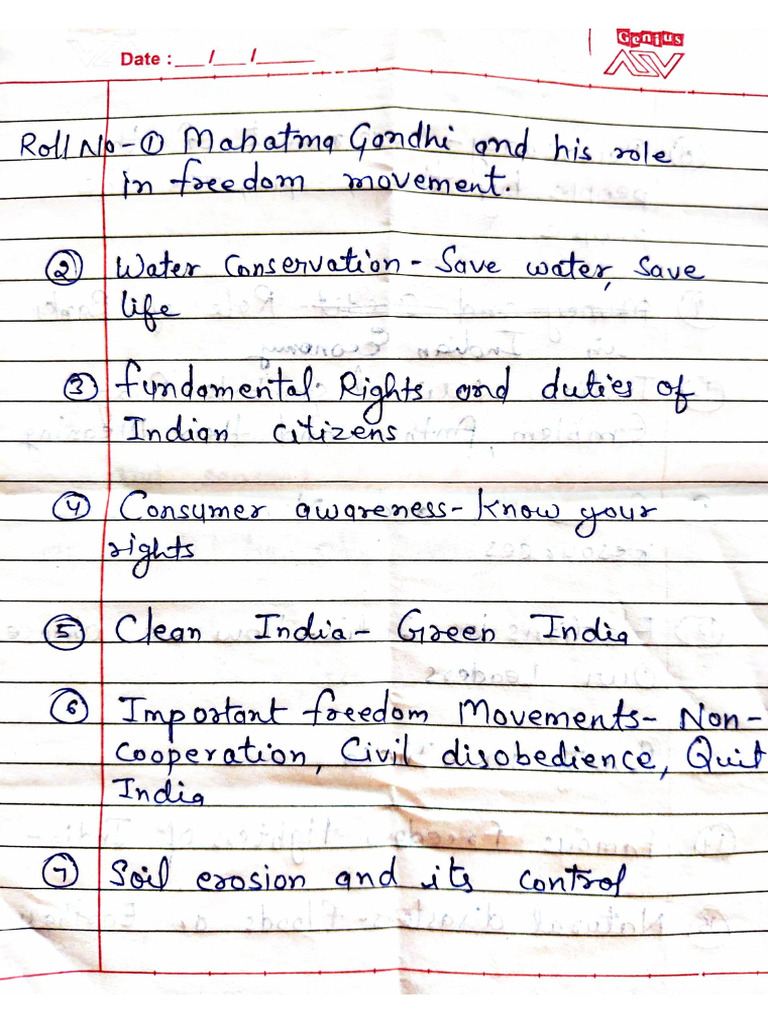 Genius
Date : __/__/____
ASV
Roll No - ① Mahatma Gandhi and his role
in freedom movement.
② Water Conservation - Save water, save
life
③ fundamental Rights and duties of
Indian citizens
④ Consumer awareness - know your
rights
⑤ Clean India - Green India
⑥ Important freedom Movements - Non-
cooperation, Civil disobedience, Quit
India
⑦ Soil erosion and its control